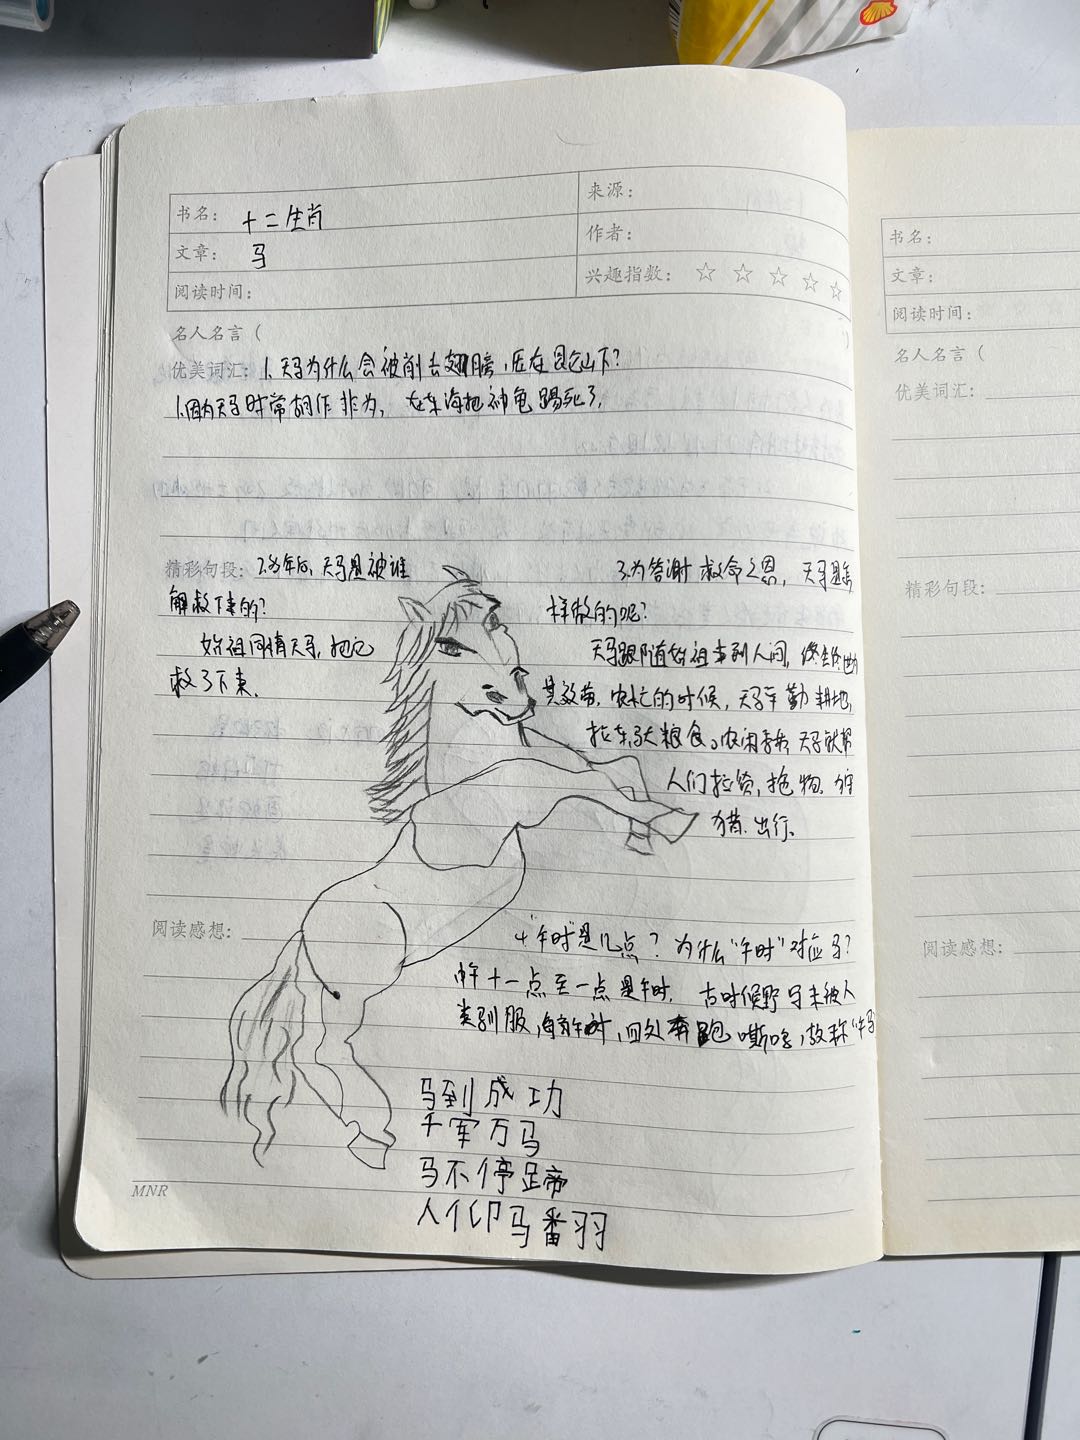 书名： 十二生肖
来源：
文章： 马
作者：
阅读时间：
兴趣指数： ☆ ☆ ☆ ☆ ☆
名人名言（
）
优美词汇： 1.天马为什么会被削去翅膀，压在昆仑山下？
1.因为天马时常胡作非为，在东海把神龟踢死了，
精彩句段： 2.多年后，天马是被谁
解救下来的？
始祖同情天马，把它
救了下来，
3.为答谢救命之恩，天马是怎
样做的呢？
天马跟随始祖来到人间，终生终世为
其效劳，农忙的时候，天马辛勤耕地，
拉车驮粮食。农闲季节 天马就帮
人们拉货，抢物，狩
猎、出行、
阅读感想：
4"午时"是几点？为什么"午时"对应马？
中午十一点至一点是午时， 古时候野马未被人
类驯服，每到午时，四处奔跑嘶鸣，故称"午马
马到成功
千军万马
马不停蹄
人仰马翻
MNR
书名：
文章：
阅读时间：
名人名言（
优美词汇：
精彩句段：
阅读感想：